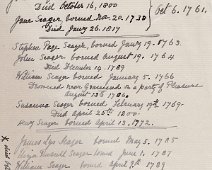 Died October 16, 1800
Oct 6. 1761.
Jane Seager borned Mar. 20. 1738
Died Jany 26. 1817
Stephen Page Seager borned Jany 19. 1763.
John Seager borned August 19. 1764
Died December 19. 1789
William Seager borned January 5. 1766
Drowned near in a party of Pleasure
August 13th 1786.
Susanna Seager borned February 17th 1769.
Died April 25th 1800.
Henry Seager borned April 13. 1772.
Seager borned May 5. 1785
Seager borned June 1. 1787
William Seager borned April 9th 1789